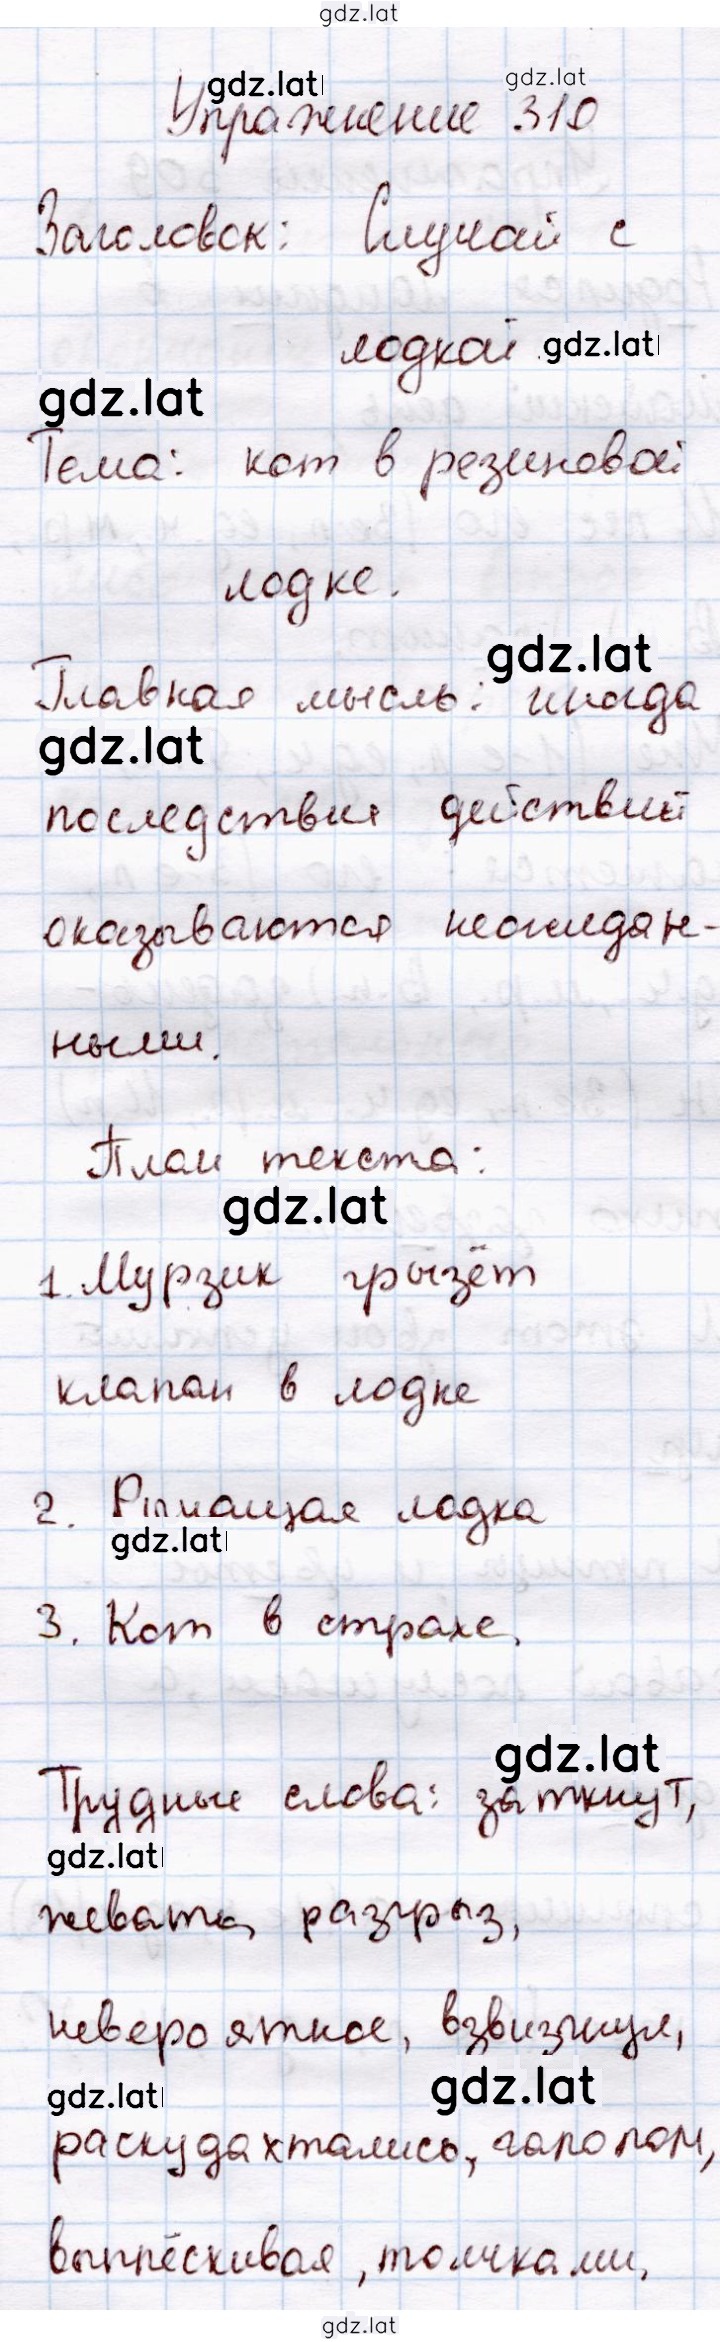 gdz.lat
gdz.lat gdz.lat
Упражнение 310
Заголовок: Случай с
лодкой. gdz.lat
gdz.lat
Тема: кот в резиновой
лодке.
gdz.lat
Главная мысль: иногда
gdz.lat
последствия действий
оказываются неожидан-
ными.
План текста:
gdz.lat
1. Мурзик грызёт
клапан в лодке
2. Рычащая лодка
gdz.lat
3. Кот в страхе.
gdz.lat
Трудные слова: заткнут,
gdz.lat
жевать, разгрыз,
невероятное, взвизгнул,
gdz.lat gdz.lat
раскудахтались, галопом,
выплёскивая, толчками.
gdz.lat